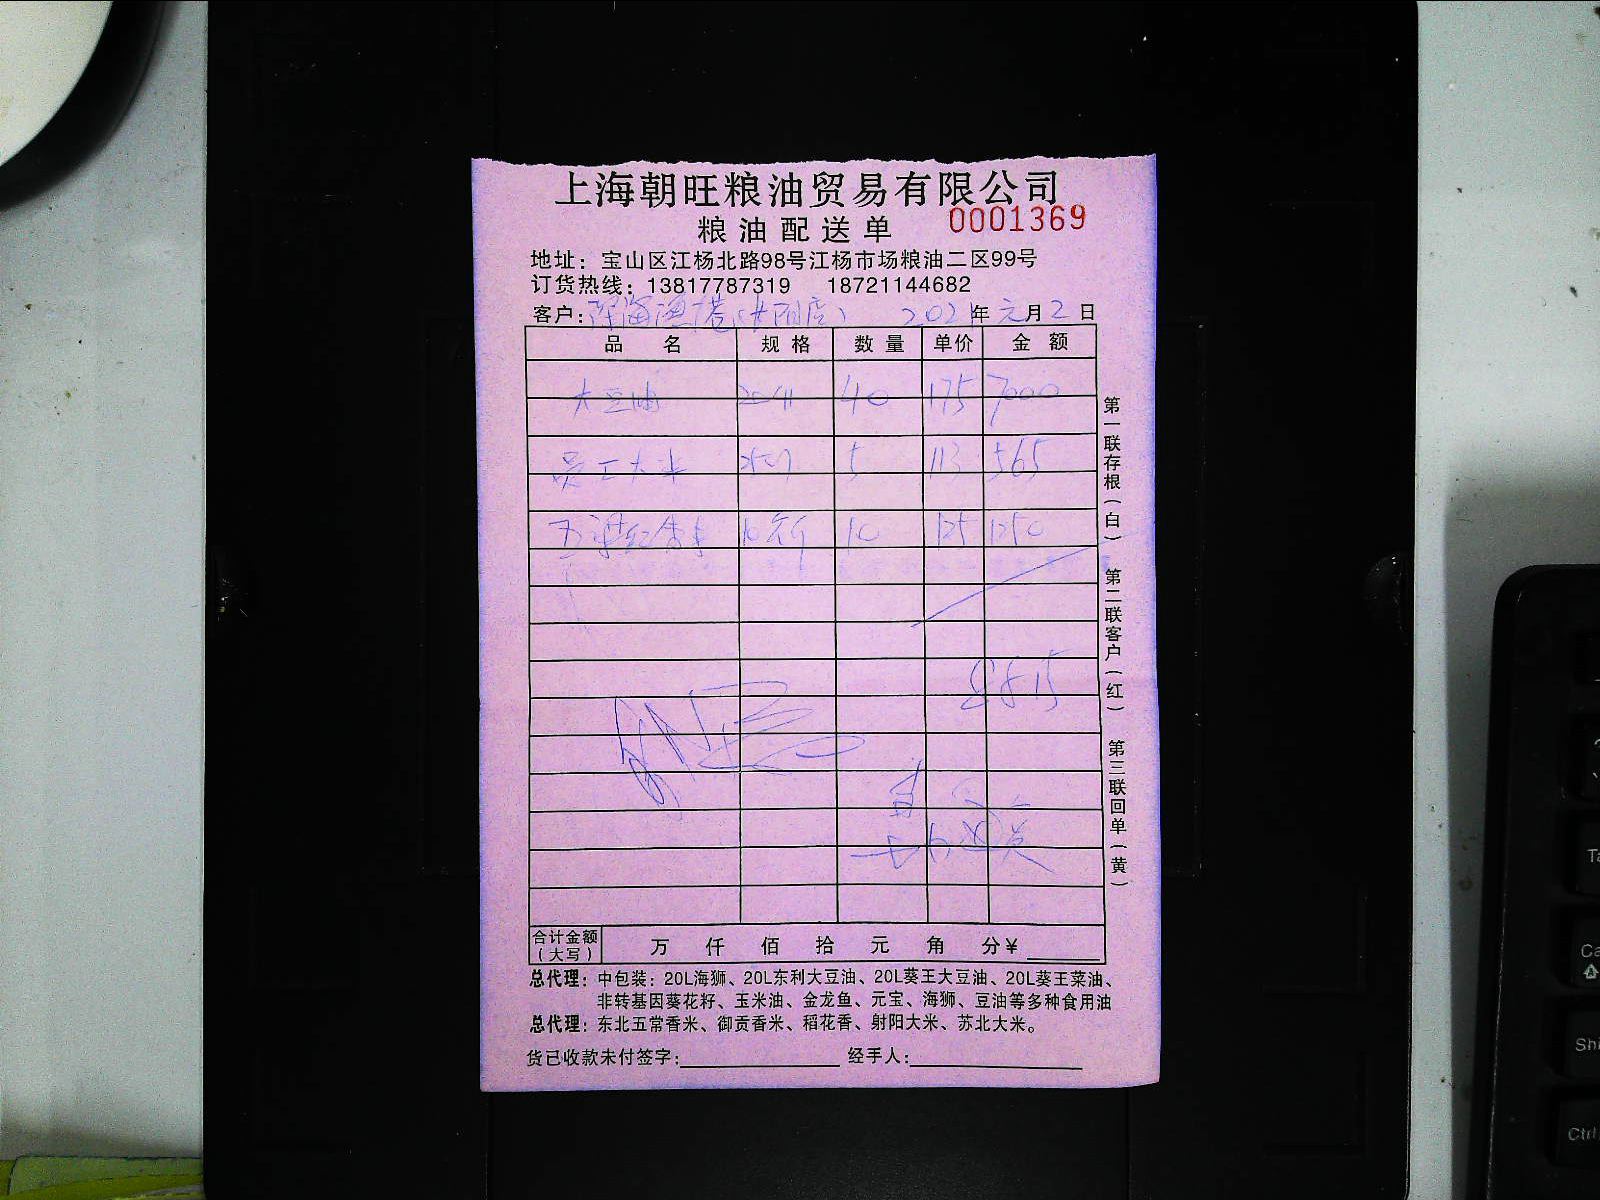 上海朝旺粮油贸易有限公司
粮油配送单
0001369
地址：宝山区江杨北路98号江杨市场粮油二区99号
订货热线：13817787319 18721144682
客户： 2021年元月2日
品名 规格 数量 单价 金额
大豆油 40 175 7000
员工大米 5 113 565
10 125 1250
8815
合计金额（大写） 万 仟 佰 拾 元 角 分¥
总代理：中包装：20L海狮、20L东利大豆油、20L葵王大豆油、20L葵王菜油、
非转基因葵花籽、玉米油、金龙鱼、元宝、海狮、豆油等多种食用油
总代理：东北五常香米、御贡香米、稻花香、射阳大米、苏北大米。
货已收款未付签字： 经手人：
第一联存根（白） 第二联客户（红） 第三联回单（黄）
Ctrl